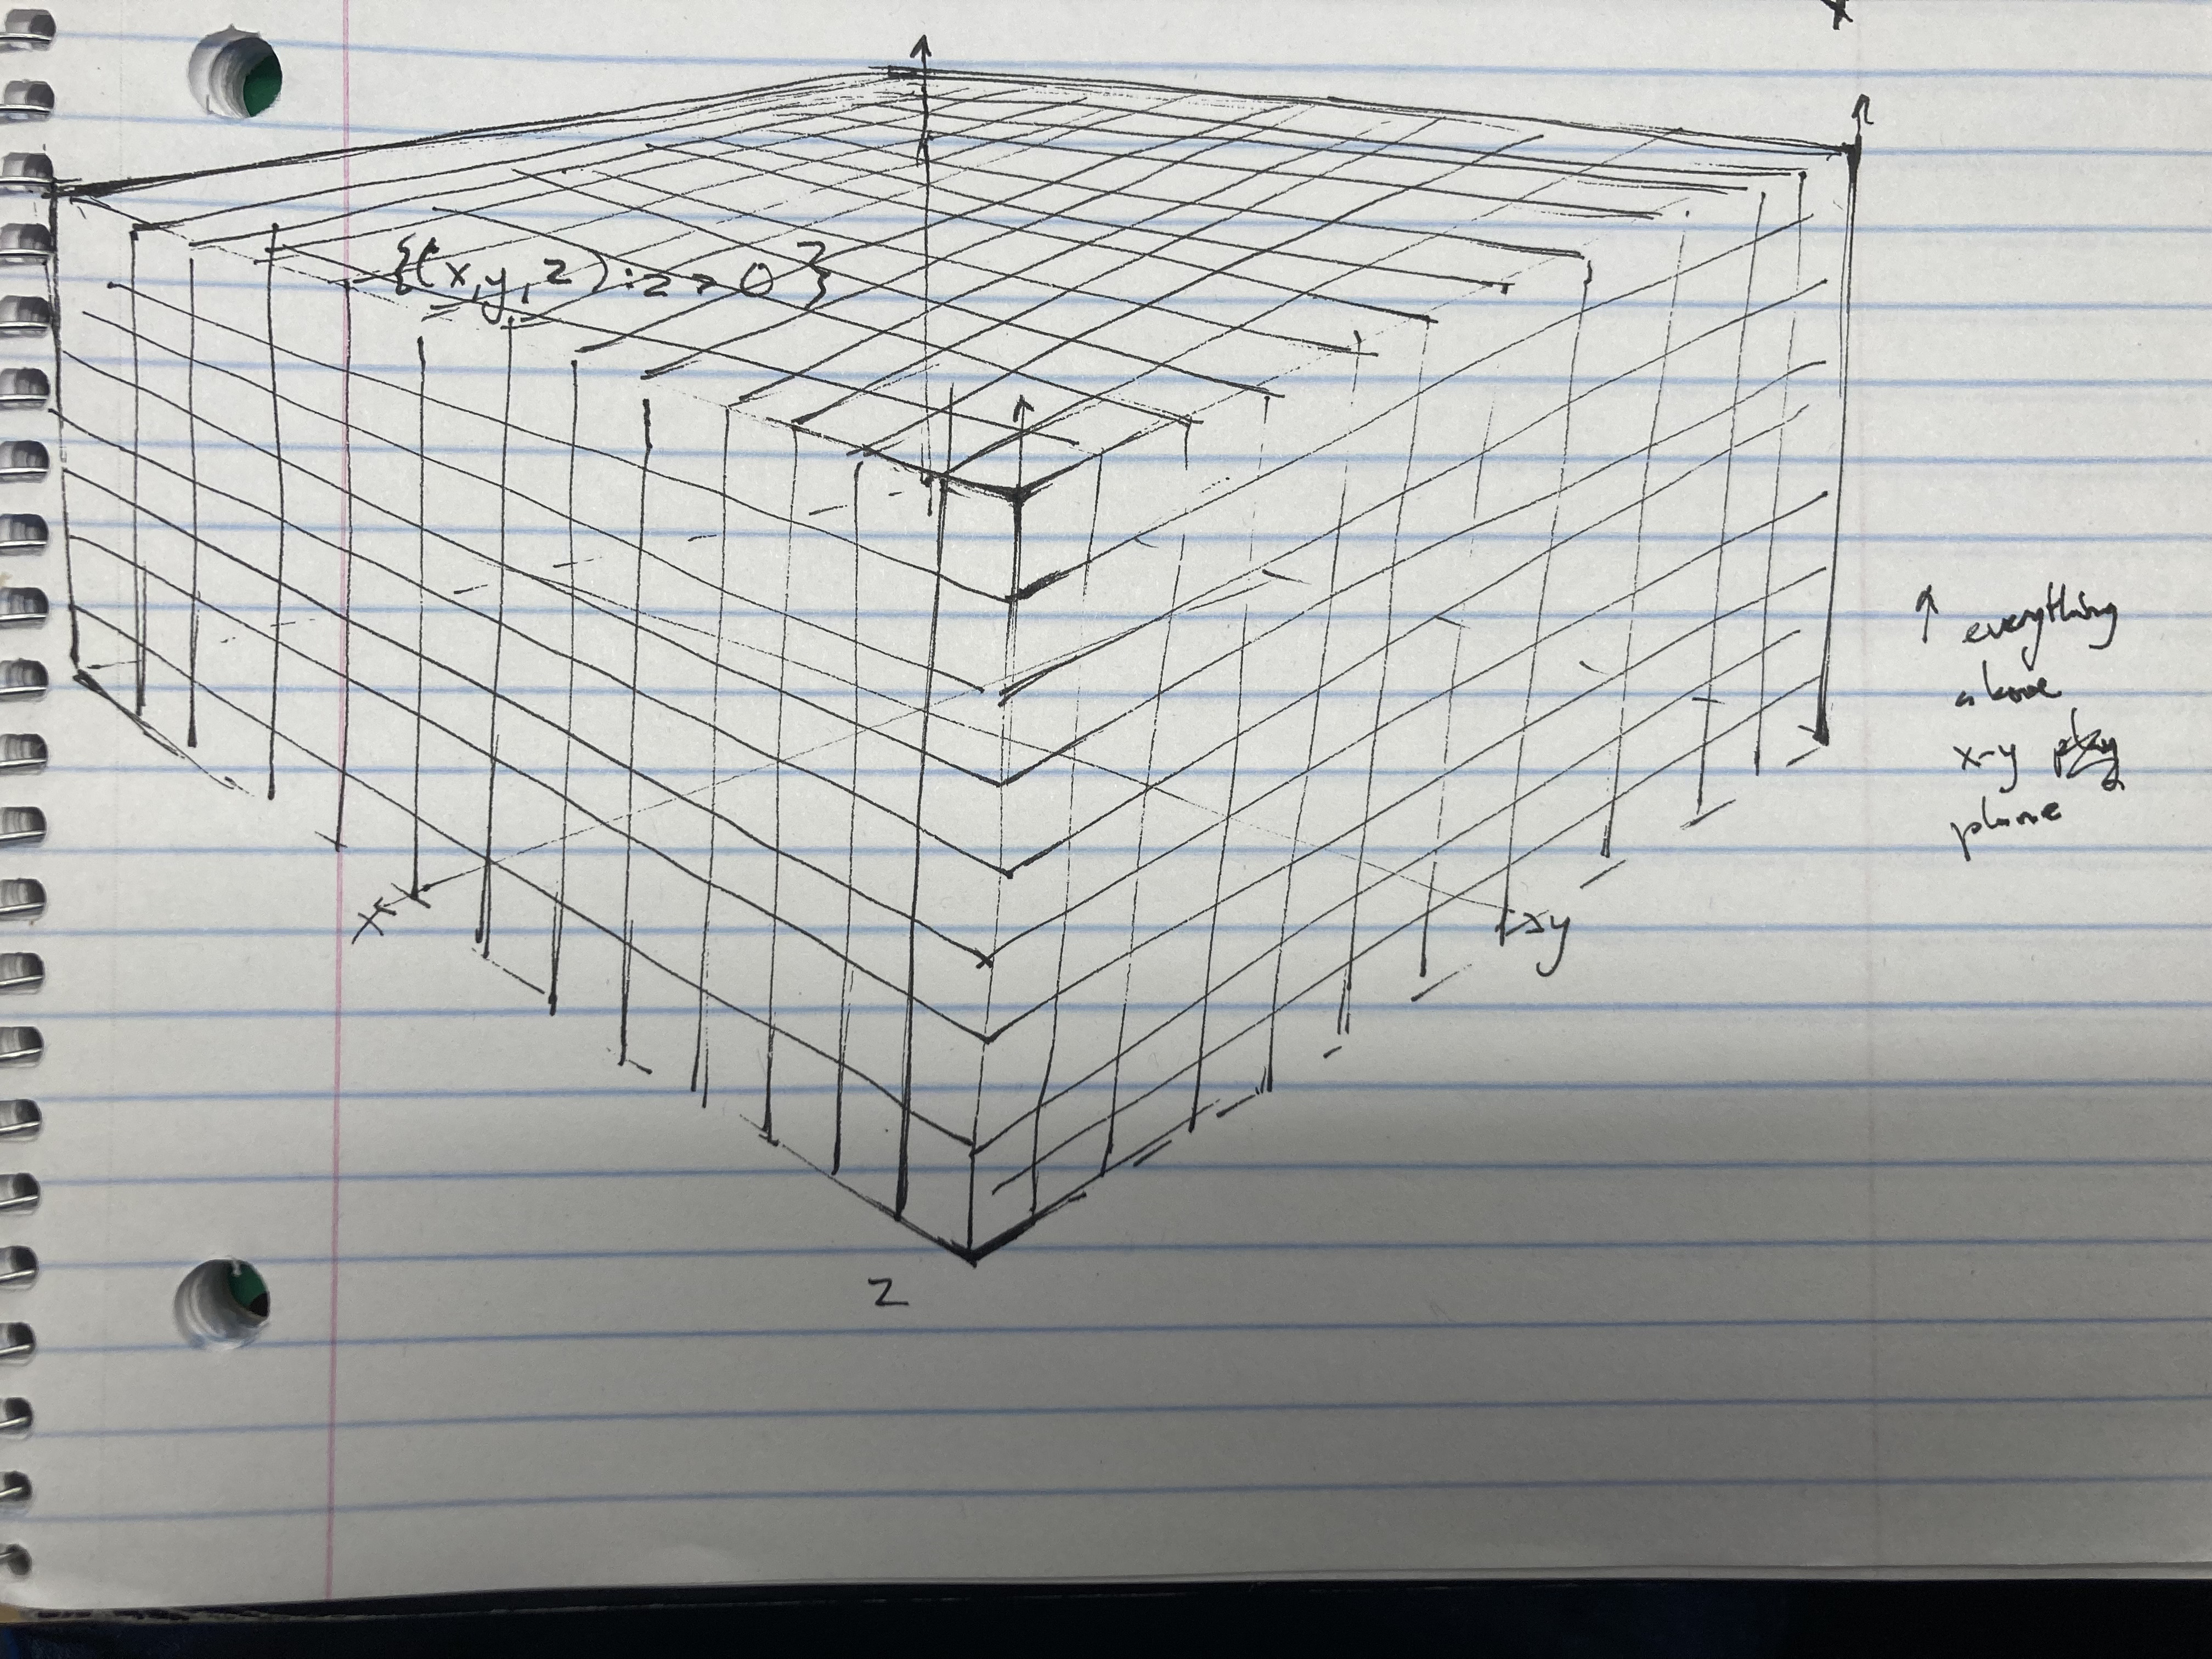 {(x,y,z):z>0}
↑ everything
above
x-y
plane
x
y
z